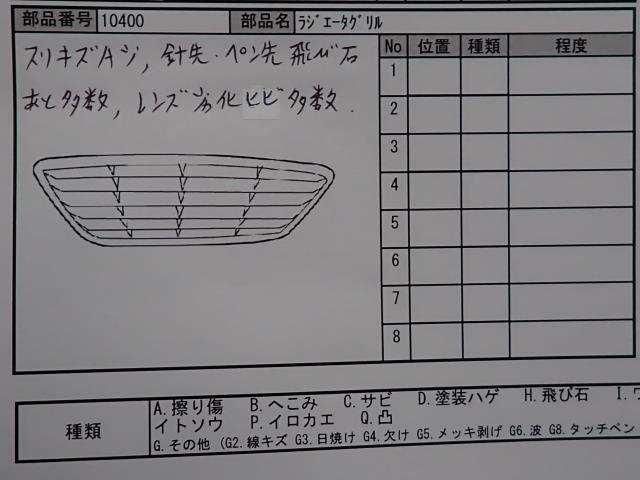 部品番号 10400 部品名 ﾗｼﾞｴｰﾀｸﾞﾘﾙ
スリキズハジ, 針先・ペン先飛び石
あと多数, レンズ劣化ヒビ多数.
No 位置 種類 程度
1
2
3
4
5
6
7
8
種類
A.擦り傷 B.へこみ C.サビ D.塗装ハゲ H.飛び石 I.
イトソウ P.イロカエ Q.凸
G.その他 (G2.線キズ G3.日焼け G4.欠け G5.メッキ剥げ G6.波 G8.タッチペン